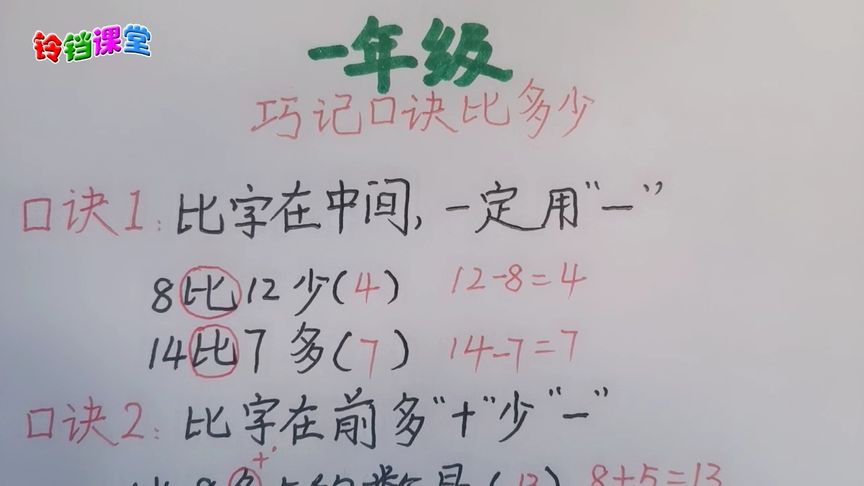 铃铛课堂
一年级
巧记口诀比多少
口诀1：比字在中间，一定用“－”
8比12少(4) 12-8=4
14比7多(7) 14-7=7
口诀2：比字在前多“+”少“－”
+
8+5=13